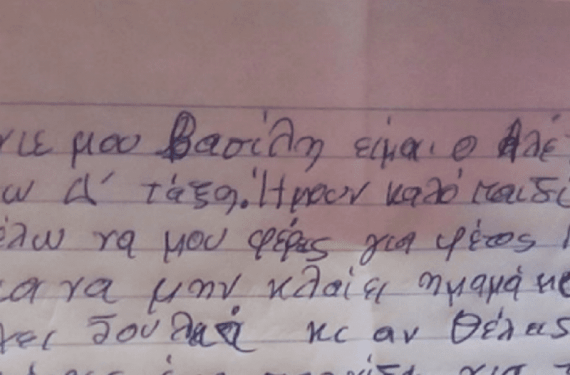 μου Βασίλη είμαι ο Αλέ
ω Δ' τάξη. Ήμουν καλό παιδί
έλω να μου φέρεις για φέτος
να μην κλαίει η μαμά
δουλειά κι αν θέλεις